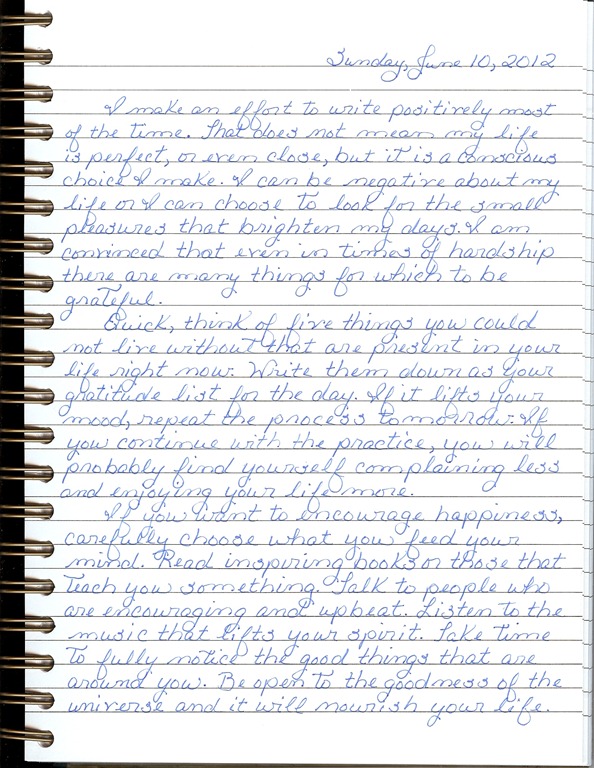 Sunday, June 10, 2012
I make an effort to write positively most
of the time. That does not mean my life
is perfect, or even close, but it is a conscious
choice I make. I can be negative about my
life or I can choose to look for the small
pleasures that brighten my days. I am
convinced that even in times of hardship
there are many things for which to be
grateful.
Quick, think of five things you could
not live without that are present in your
life right now. Write them down as your
gratitude list for the day. If it lifts your
mood, repeat the process tomorrow. If
you continue with the practice, you will
probably find yourself complaining less
and enjoying your life more.
If you want to encourage happiness,
carefully choose what you feed your
mind. Read inspiring books or those that
teach you something. Talk to people who
are encouraging and upbeat. Listen to the
music that lifts your spirit. Take time
to fully notice the good things that are
around you. Be open to the goodness of the
universe and it will nourish your life.